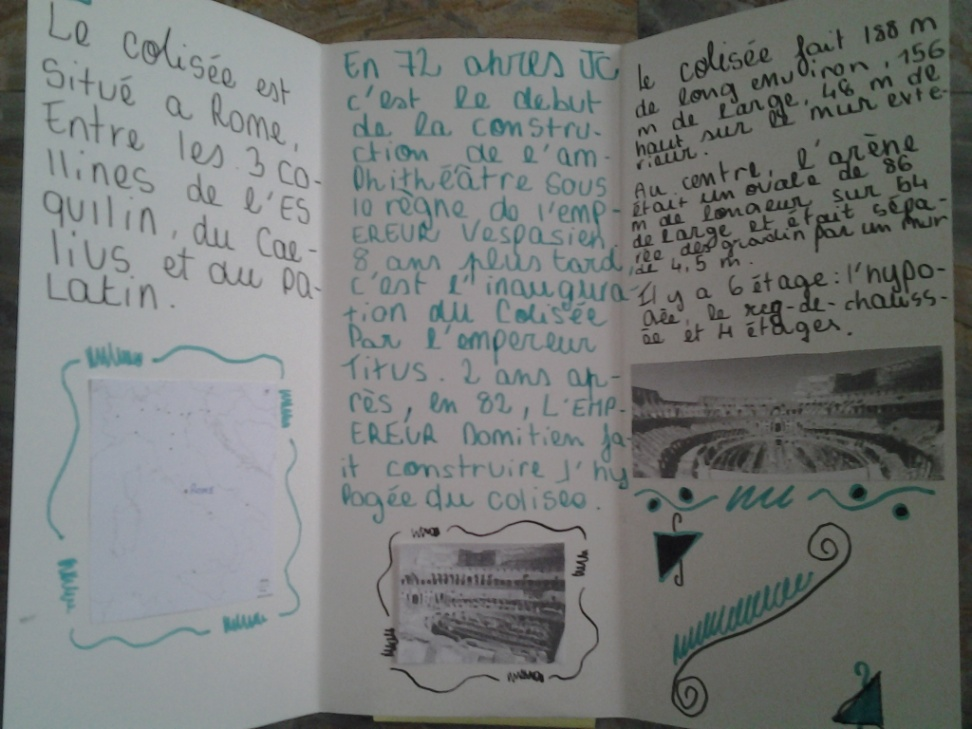 Le colisée est
situé a Rome,
Entre les 3 co-
llines de l'ES
quilin, du Cae-
lius et du pa-
Latin.
Rome
En 72 ahres JC
c'est le debut
de la constru-
ction de l'am-
Phithéâtre sous
le règne de l'emp-
EREUR Vespasien.
8 ans plus tard,
c'est l'inaugura-
tion du Colisée
Par l'empereur
Titus. 2 ans ap-
rès, en 82, L'EMP-
EREUR Domitien fa-
it construire l'hy
Pogée du coliseo.
le colisée fait 188 m
de long environ, 156
m de large, 48 m de
haut sur le mur exte-
rieur.
Au centre, l'arène
était un ovale de 86
m de longeur sur 64
de large et était sépa-
rée des gradin par un mur
de 4,5 m.
Il y a 6 étage : l'hypo-
gée, le rez-de-chauss-
ée et 4 étages.